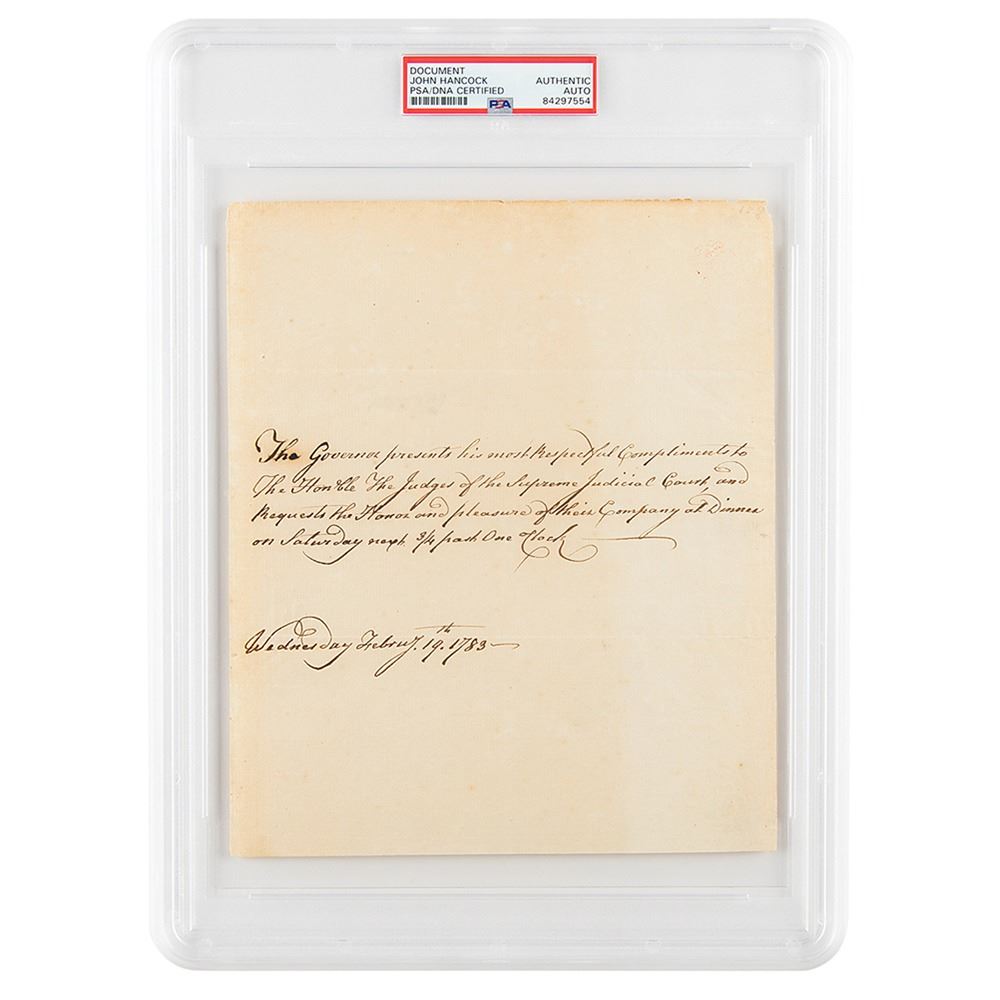 DOCUMENT
JOHN HANCOCK
PSA/DNA CERTIFIED
AUTHENTIC
AUTO
84297554
PSA
The Governor presents his most Respectful Compliments to
The Hon'ble The Judges of the Supreme Judicial Court, and
Requests the Honor and pleasure of their Company at Dinner
on Saturday next 3/4 past One Clock
Wednesday Februy. 19th. 1783